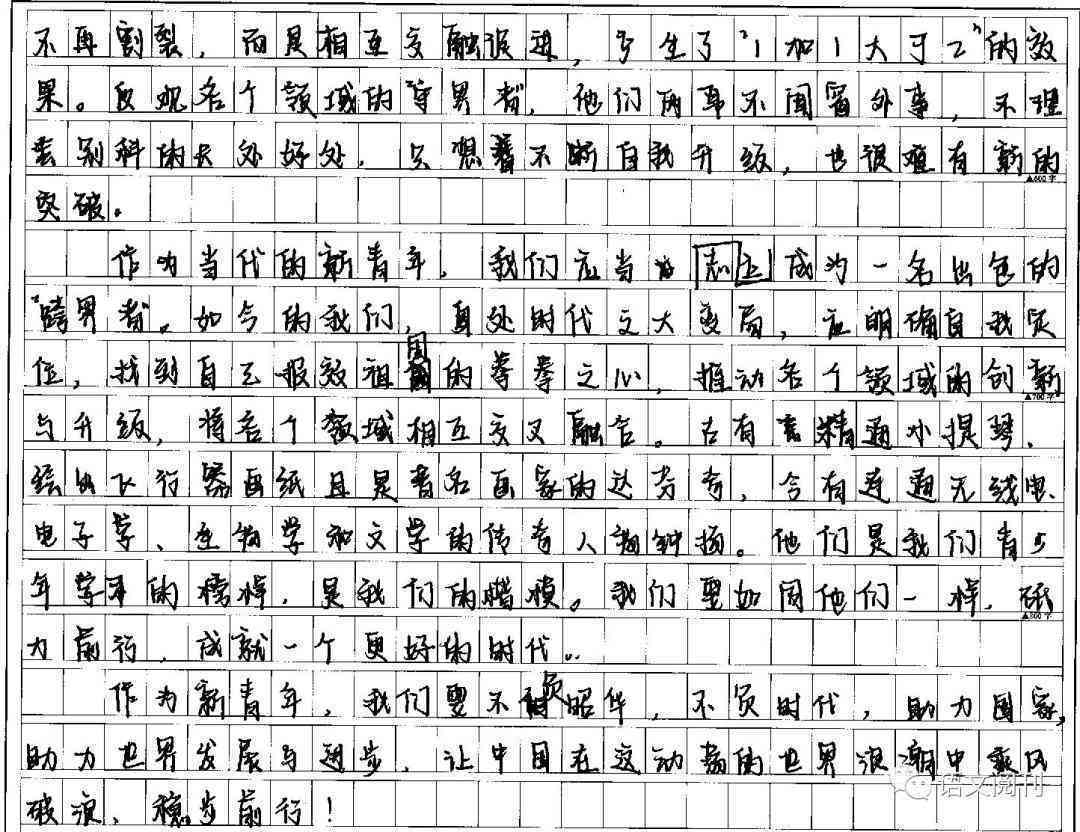 不再割裂，而是相互交融促进，产生了“1加1大于2”的效
果。反观各个领域的“守界者”，他们两耳不闻窗外事，不理
去别科的长处好处，只想着不断自我升级，也很难有新的
▲600字
突破。
作为当代的新青年，我们应当志立成为一名出色的
“跨界者”。如今的我们，身处时代之大变局，应明确自我定
位，找到自己报效祖国的拳拳之心，推动各个领域的创新
▲700字
与升级，将各个领域相互交叉融合。古有精通小提琴、
绘出飞行器画纸且是著名画家的达芬奇，今有连通无线电、
电子学、生物学和文学的传奇人物钟扬。他们是我们青少
年学习的榜样，是我们的楷模。我们要如同他们一样，砥
▲800字
力前行，成就一个更好的时代。
作为新青年，我们要不负韶华，不负时代，助力国家，
助力世界发展与进步，让中国在这动荡的世界浪潮中乘风
破浪，稳步前行！
语文阅刊